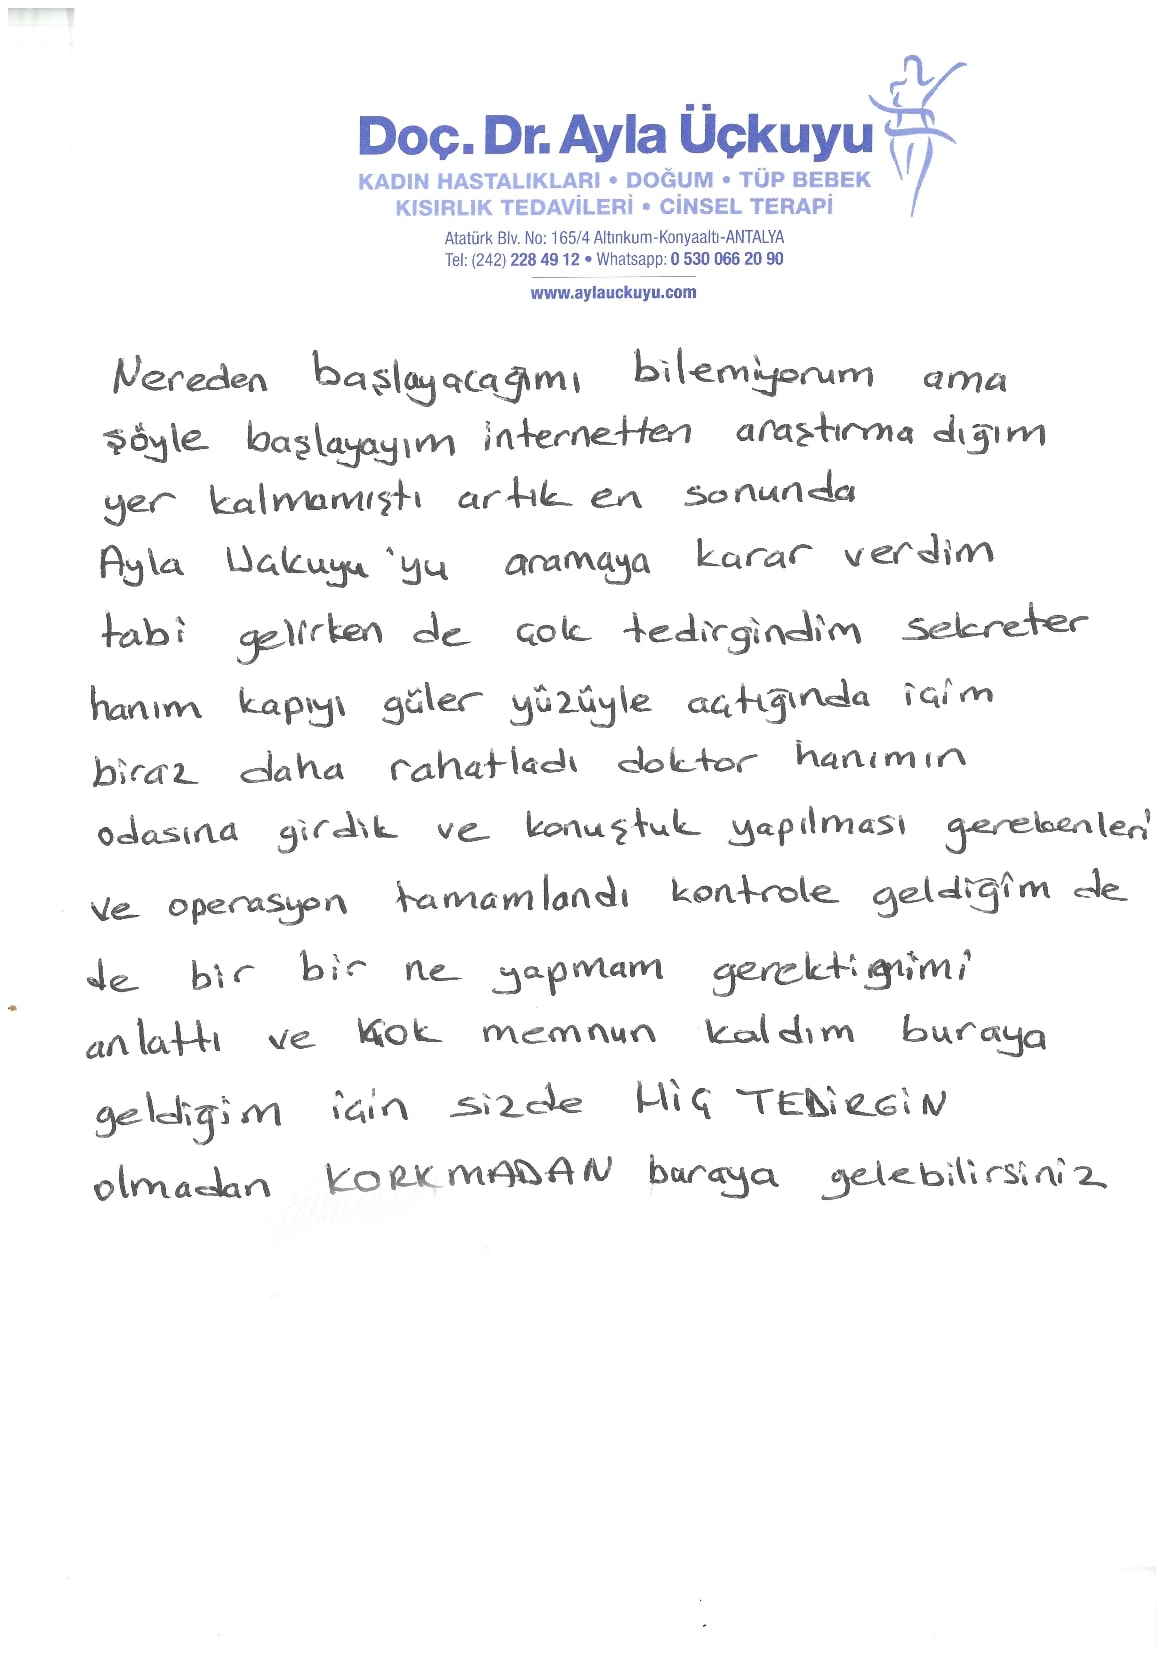 Doç. Dr. Ayla Üçkuyu
KADIN HASTALIKLARI • DOĞUM • TÜP BEBEK
KISIRLIK TEDAVİLERİ • CİNSEL TERAPİ
Atatürk Blv. No: 165/4 Altınkum-Konyaaltı-ANTALYA
Tel: (242) 228 49 12 • Whatsapp: 0 530 066 20 90
www.aylauckuyu.com
Nereden başlayacağımı bilemiyorum ama
şöyle başlayayım internetten araştırma dığım
yer kalmamıştı artık en sonunda
Ayla Uakuyu 'yu aramaya karar verdim
tabi gelirken de çok tedirgindim sekreter
hanım kapıyı güler yüzüyle açtığında içim
biraz daha rahatladı doktor hanımın
odasına girdik ve konuştuk yapılması gerekenleri
ve operasyon tamamlandı kontrole geldiğim de
de bir bir ne yapmam gerektiğimi
anlattı ve çok memnun kaldım buraya
geldiğim için sizde HİÇ TEDİRGİN
olmadan KORKMADAN buraya gelebilirsiniz